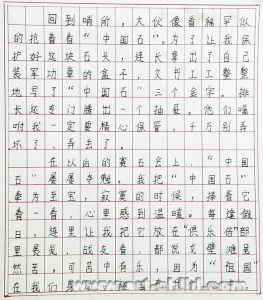 回到哨所，大伙像看稀罕似
的抢着看“中国石”。为了让我保
护好这块石头，连长拿出了自己
装军功章的盒子，文书工工整整
地写了“中国石”三个金字。排
长还专门腾出一个抽屉。他们嘱
咐我一定要精心保管，千万别弄
坏了、弄丢了。
在以后的赛石会上，“中国
石”屡屡夺魁。我把“中国石”
奉为至宝，寂寞的时候，捧着它
看一看，心里感到温暖。每逢假
日，连里让我把它放在“俱乐部
里展览，战友看，都说戈壁滩虽
然苦，可苦中有乐，因为“祖国”
在我们